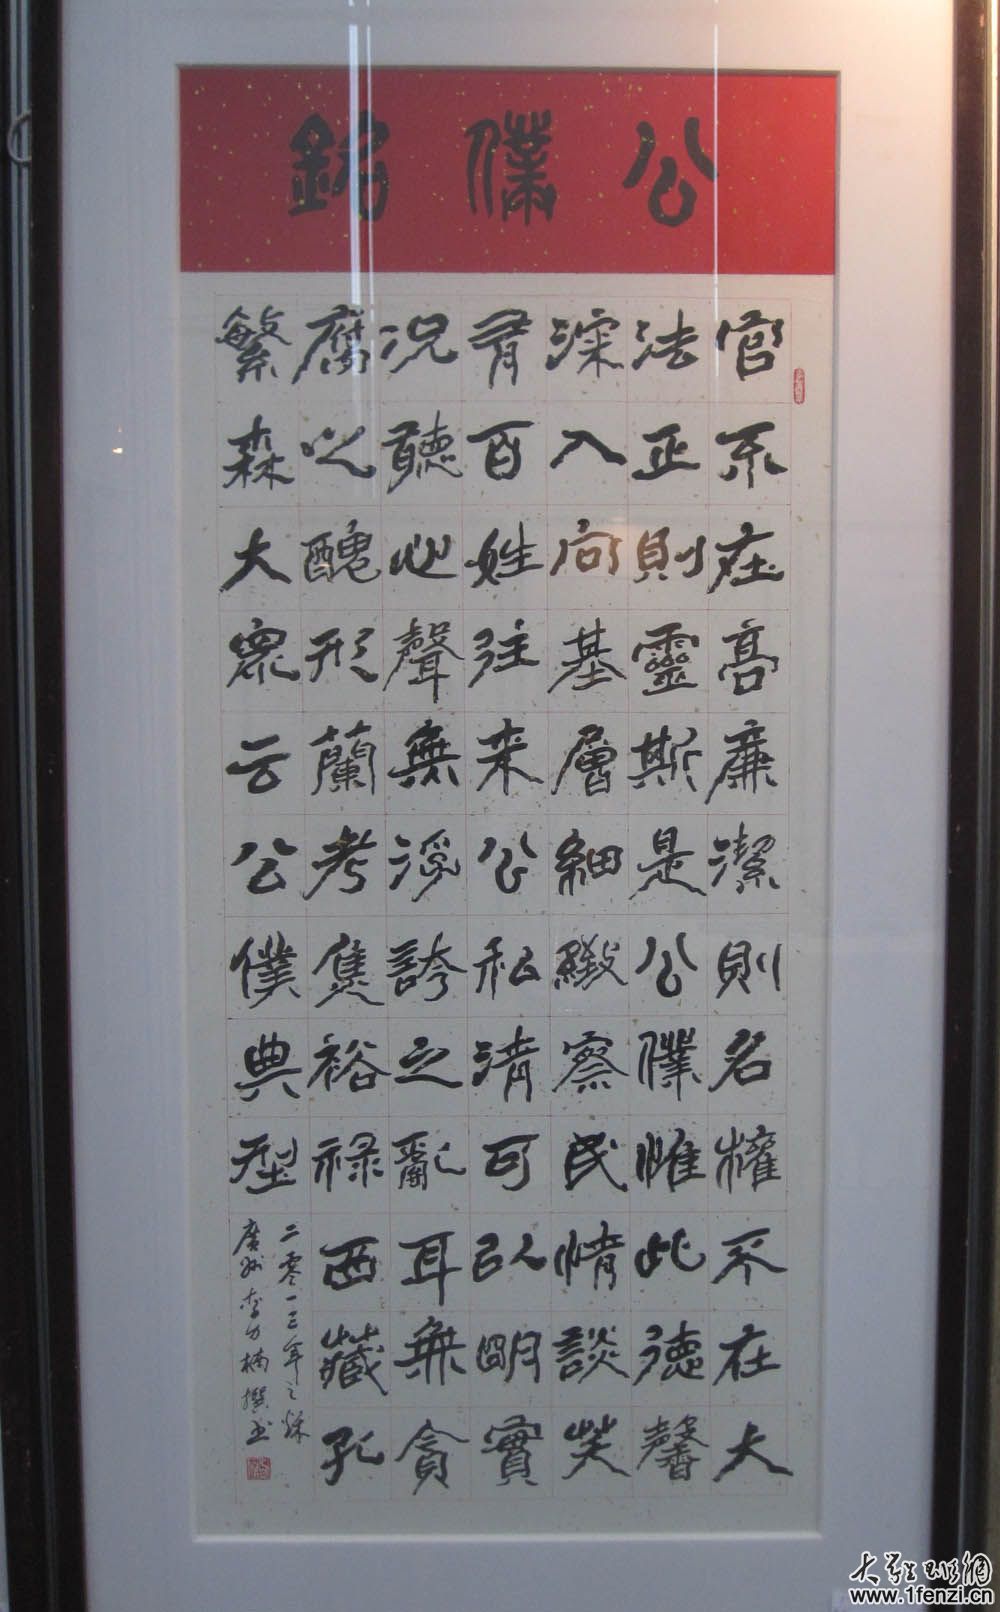 公僕銘
官不在高廉潔則名權不在大
法正則靈斯是公僕惟此德馨
深入向基層細緻察民情談笑
有百姓往来公私清可以明實
况聽心聲無浮誇之亂耳無貪
腐之醜形蘭考焦裕禄西藏孔
繁森大衆云公僕典型
二零一三年之秋
廣州李力楠撰书
大學生班網
www.1fenzi.cn